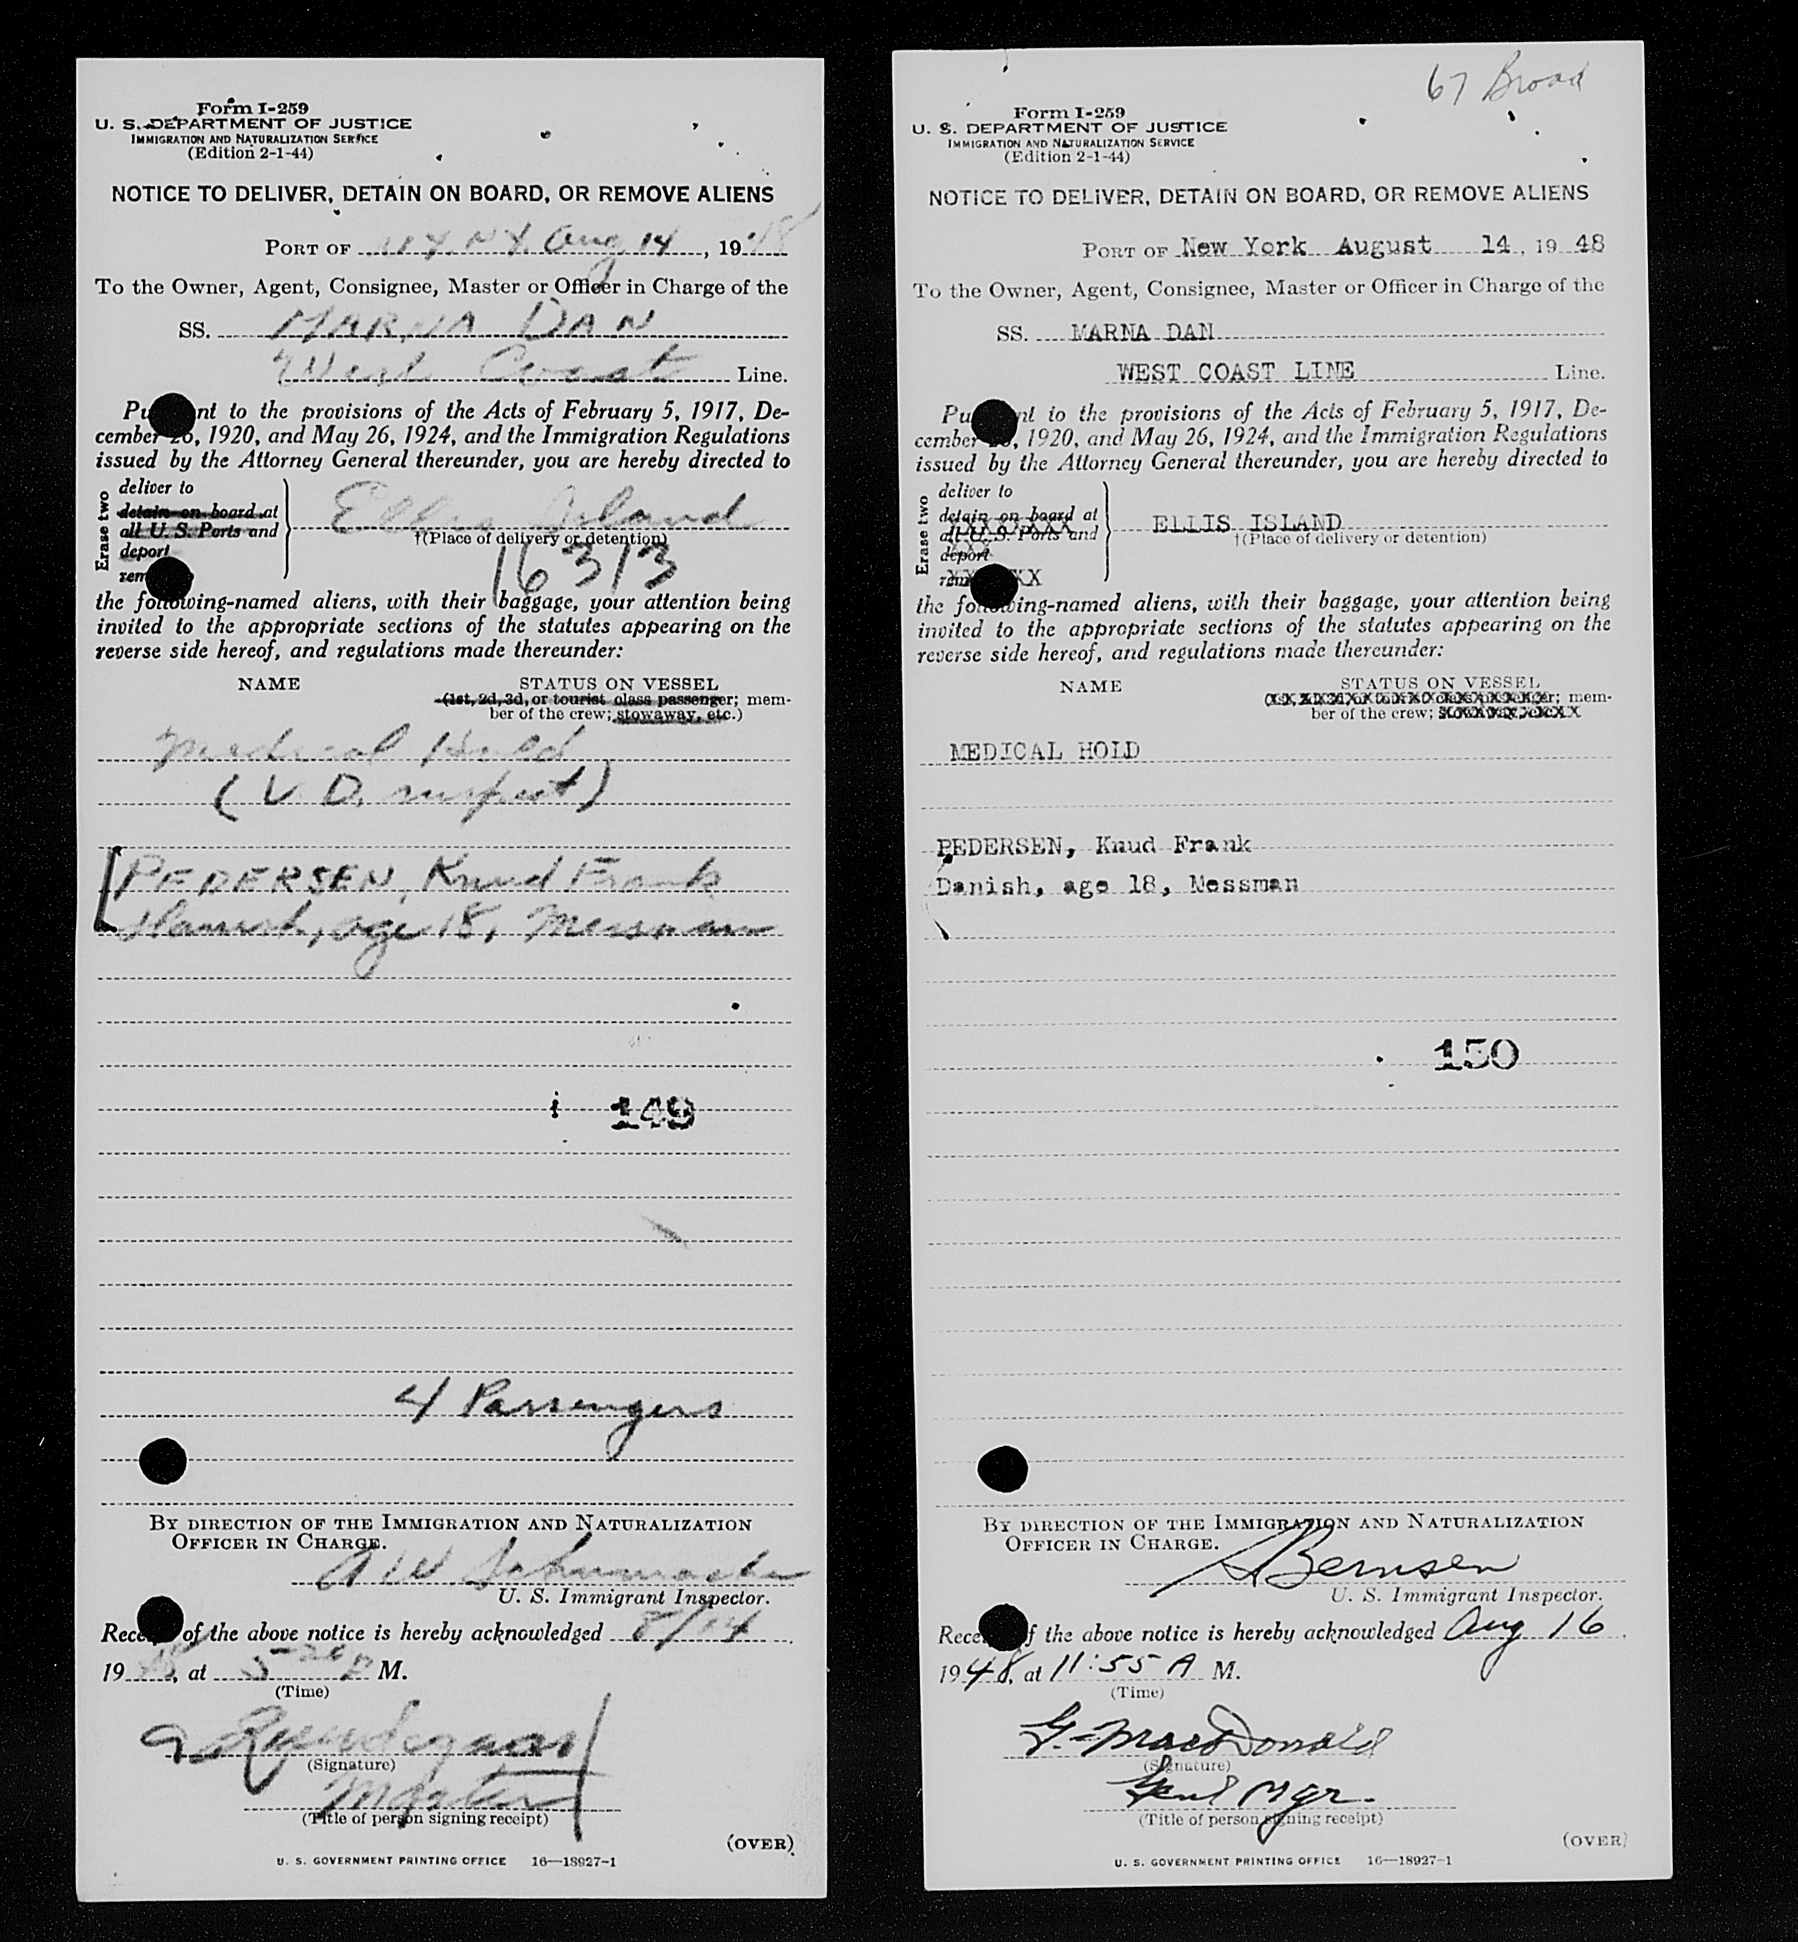 Form I-259
U. S. DEPARTMENT OF JUSTICE
IMMIGRATION AND NATURALIZATION SERVICE
(Edition 2-1-44)
NOTICE TO DELIVER, DETAIN ON BOARD, OR REMOVE ALIENS
PORT OF N.Y. Aug 14, 1948
To the Owner, Agent, Consignee, Master or Officer in Charge of the
SS. MARNA DAN
West Coast Line.
Pu nt to the provisions of the Acts of February 5, 1917, De-
cember 26, 1920, and May 26, 1924, and the Immigration Regulations
issued by the Attorney General thereunder, you are hereby directed to
Erase two
deliver to
detain on board at
all U. S. Ports and
deport
rem
Ellis Island
†(Place of delivery or detention)
16313
the following-named aliens, with their baggage, your attention being
invited to the appropriate sections of the statutes appearing on the
reverse side hereof, and regulations made thereunder:
NAME STATUS ON VESSEL
(1st, 2d, 3d, or tourist class passenger; mem-
ber of the crew; stowaway, etc.)
Medical Hold
(V.D. suspect)
PEDERSEN, Knud Frank
Danish, age 18, Messman
149
4 Passengers
BY DIRECTION OF THE IMMIGRATION AND NATURALIZATION
OFFICER IN CHARGE.
A W Schumacher
U. S. Immigrant Inspector.
Rece of the above notice is hereby acknowledged 8/14
1948, at 5 20 P M.
(Time)
(Signature)
Master
(Title of person signing receipt)
(OVER)
U. S. GOVERNMENT PRINTING OFFICE 16—18927-1
67 Broad
Form I-259
U. S. DEPARTMENT OF JUSTICE
IMMIGRATION AND NATURALIZATION SERVICE
(Edition 2-1-44)
NOTICE TO DELIVER, DETAIN ON BOARD, OR REMOVE ALIENS
PORT OF New York August 14, 19 48
To the Owner, Agent, Consignee, Master or Officer in Charge of the
SS. MARNA DAN
WEST COAST LINE Line.
Pu nt to the provisions of the Acts of February 5, 1917, De-
cember 26, 1920, and May 26, 1924, and the Immigration Regulations
issued by the Attorney General thereunder, you are hereby directed to
Erase two
deliver to
detain on board at
all U. S. Ports and
deport
rem XX
ELLIS ISLAND
†(Place of delivery or detention)
the following-named aliens, with their baggage, your attention being
invited to the appropriate sections of the statutes appearing on the
reverse side hereof, and regulations made thereunder:
NAME STATUS ON VESSEL
(1st, 2d, 3d, or tourist class passenger; mem-
ber of the crew; stowaway, etc.)
MEDICAL HOLD
PEDERSEN, Knud Frank
Danish, age 18, Messman
150
BY DIRECTION OF THE IMMIGRATION AND NATURALIZATION
OFFICER IN CHARGE.
Bernsen
U. S. Immigrant Inspector.
Rece f the above notice is hereby acknowledged Aug 16
1948, at 11:55 A M.
(Time)
G. MacDonald
(Signature)
Genl Mgr.
(Title of person signing receipt)
(OVER)
U. S. GOVERNMENT PRINTING OFFICE 16—18927-1